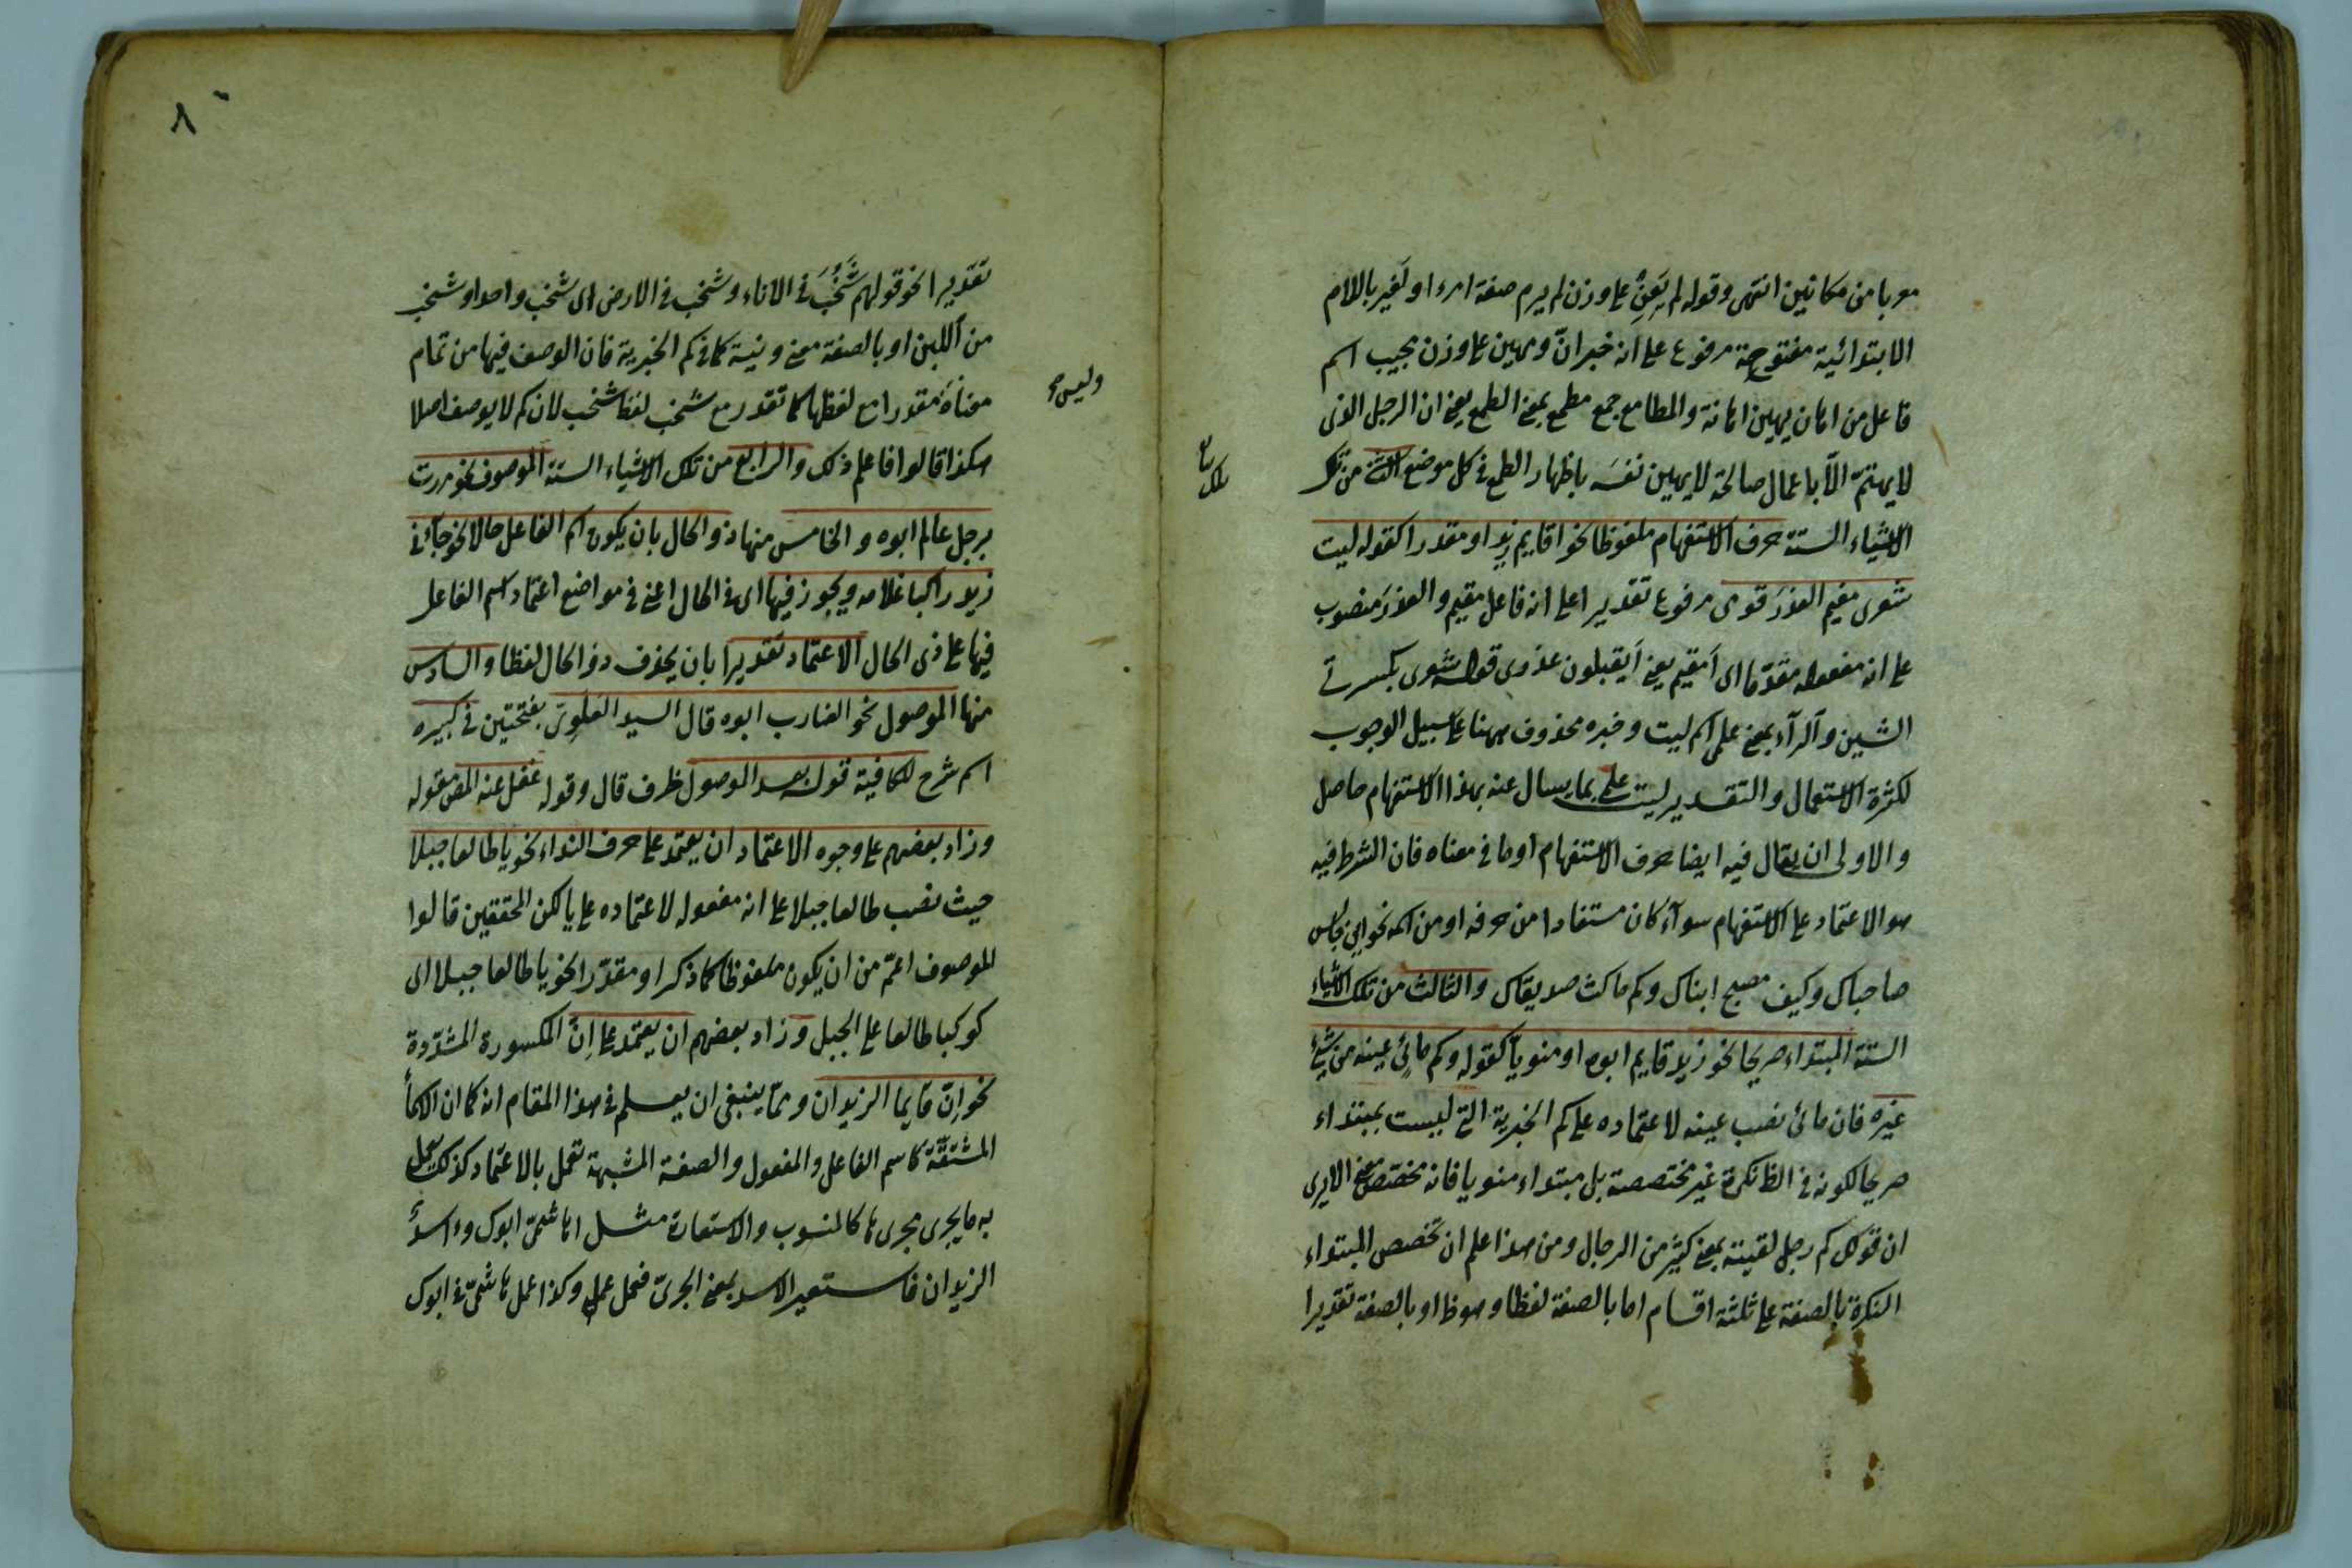 معربا من مكانين انتهى وقوله لم يَعِنْ على وزن لم يرم صفة امرء او لَغير باللام
الابتدائية مفتوحة مرفوع على انه خبر انّ ومهين على وزن مجيب اسم
فاعل من اهان يهين اهانة والمطامع جمع مطمع بمعنى الطمع يعنى ان الرجل الذى
لا يهتمّ الّا باعمال صالحة لا يهين نفسَه باظهار الطمع فى كل موضع من تلك
الاشياء الستة حرف الاستفهام ملفوظا نحو اقايم زيد او مقدرا كقوله ليت
شعرى مقيم العذرَ قومى مرفوع تقديرا على انه فاعل مقيم والعذرَ منصوب
على انه مفعوله مقدّما اى اَمقيم يعنى اَيقبلون عذرى قوله شعرى بكسر
الشين والرآء بمعنى علمى اسم ليت وخبره محذوف ههنا على سبيل الوجوب
لكثرة الاستعمال والتقدير ليت علمى بما يسال عنه بهذا الاستفهام حاصل
والاولى ان يقال فيه ايضا حرف الاستفهام او ما فى معناه فان الشرط فيه
هو الاعتماد على الاستفهام سوآء كان مستفادا من حرفه او من اسمه نحو اين جالس
صاحباك وكيف مصبح ابناك وكم ماكث صديقاك والثالث من تلك الاشياء
الستة المبتداء صريحا نحو زيد قايم ابوه او منويّا كقوله وكم مالئ عينه من شىء
غيره فان مالئ نصب عينه لاعتماده على كم الخبرية التى ليست بمبتداء
صريحا لكونه فى الظ نكرة غير مختصصة بل مبتداء منويا فانه مختصص معنى الا يرى
ان قولك كم رجل لقيته بمعنى كثير من الرجال ومن هذا علم ان تخصص المبتداء
النكرة بالصفة على ثلثة اقسام اما بالصفة لفظا وهو ظ او بالصفة تقديرا
٨
تقديرا نحو قولهم شَخْبٌ فى الاناء وشخب فى الارض اى شخب واحد او شخب
من اللبن او بالصفة معنى ونية كما فى كم الخبرية فان الوصف فيها من تمام
معناه مقدرا مع لفظها كما تقدر مع شخب لفظ شخب لان كم لا يوصف اصلا
هكذا قالوا فاعلم ذلك والرابع من تلك الاشياء الستة الموصوف نحو مررت
برجل عالم ابوه والخامس منها ذو الحال بان يكون اسم الفاعل حالا نحو جآءنى
زيد راكبا غلامه ويجوز فيها اى فى الحال اعنى فى مواضع اعتماد اسم الفاعل
فيها على ذى الحال الاعتماد تقديرا بان يحذف ذو الحال لفظا والسادس
منها الموصول نحو الضارب ابوه قال السيد العَلَوِىّ بفتحتين فى كبيره
اسم شرح للكافية قوله بعد الموصول ظرف قال وقوله غفل عنه المص مقوله
وزاد بعضهم على وجوه الاعتماد ان يعتمد على حرف النداء نحو يا طالعا جبلا
حيث نصب طالعا جبلا على انه مفعوله لاعتماده على يا لكن المحققين قالوا
الموصوف اعمّ من ان يكون ملفوظا كما ذكرا او مقدّرا نحو يا طالعا جبلا اى
كوكبا طالعا على الجبل وزاد بعضهم ان يعتمد على اِنّ المكسورة المشدّدة
نحو اِنّ قايما الزيدان وممّا ينبغى ان يعلم فى هذا المقام انه كما ان الاسمآء
المشتقّة كاسم الفاعل والمفعول والصفة المشبهة تعمل بالاعتماد كذلك يعمل
به ما يجرى مجراها كالمنسوب والاستعارة مثل اهاشمىّ ابوك وءاسدٌ
الزيدان فاستعير الاسد بمعنى الجرىّ فعمل عمله وكذا عمل هاشمىّ فى ابوك